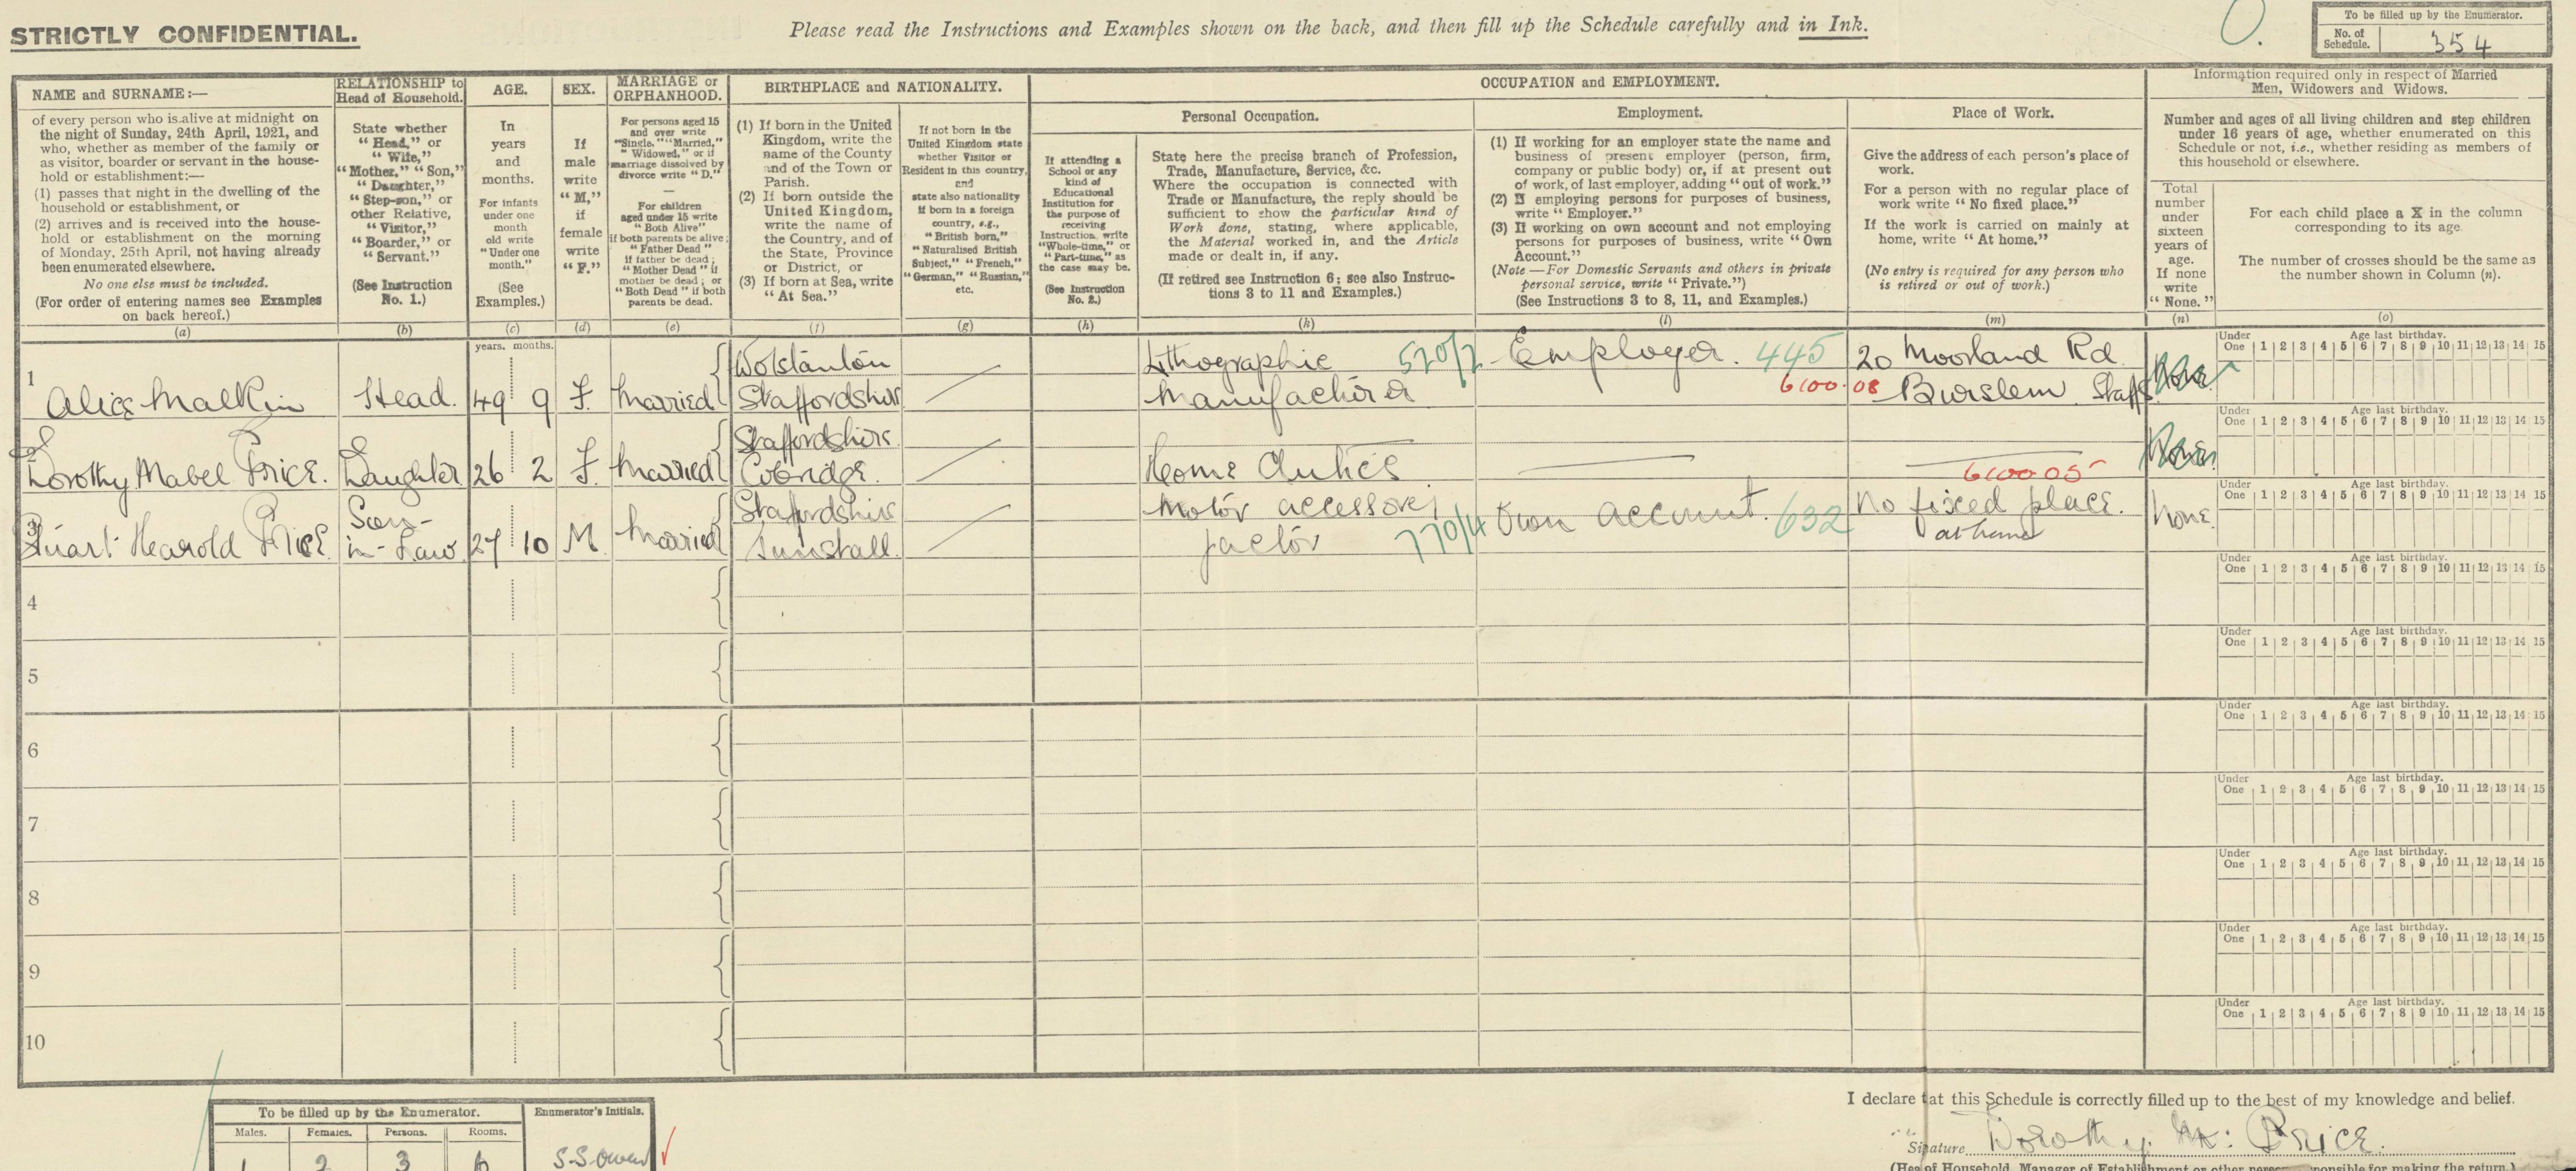 STRICTLY CONFIDENTIAL.
Please read the Instructions and Examples shown on the back, and then fill up the Schedule carefully and in Ink.
To be filled up by the Enumerator.
No. of Schedule. 354
NAME and SURNAME:—
of every person who is alive at midnight on
the night of Sunday, 24th April, 1921, and
who, whether as member of the family or
as visitor, boarder or servant in the house-
hold or establishment:—
(1) passes that night in the dwelling of the
household or establishment, or
(2) arrives and is received into the house-
hold or establishment on the morning
of Monday, 25th April, not having already
been enumerated elsewhere.
No one else must be included.
(For order of entering names see Examples
on back hereof.)
(a)
RELATIONSHIP to
Head of Household.
State whether
"Head," or
"Wife,"
"Mother," "Son,"
"Daughter,"
"Step-son," or
other Relative,
"Visitor,"
"Boarder," or
"Servant."
(See Instruction
No. 1.)
(b)
AGE.
In
years
and
months.
For infants
under one
month
old write
"Under one
month."
(See
Examples.)
(c)
SEX.
If
male
write
"M,"
if
female
write
"F."
(d)
MARRIAGE or
ORPHANHOOD.
For persons aged 15
and over write
"Single," "Married,"
"Widowed," or if
marriage dissolved by
divorce write "D."
—
For children
aged under 15 write
"Both Alive"
if both parents be alive;
"Father Dead"
if father be dead;
"Mother Dead" if
mother be dead; or
"Both Dead" if both
parents be dead.
(e)
BIRTHPLACE and NATIONALITY.
(1) If born in the United
Kingdom, write the
name of the County
and of the Town or
Parish.
(2) If born outside the
United Kingdom,
write the name of
the Country, and of
the State, Province
or District, or
(3) If born at Sea, write
"At Sea."
(f)
If not born in the
United Kingdom state
whether Visitor or
Resident in this country,
and
state also nationality
if born in a foreign
country, e.g.,
"British born,"
"Naturalised British
Subject," "French,"
"German," "Russian,"
etc.
(g)
OCCUPATION and EMPLOYMENT.
If attending a
School or any
kind of
Educational
Institution for
the purpose of
receiving
Instruction, write
"Whole-time," or
"Part-time," as
the case may be.
(See Instruction
No. 2.)
(h)
Personal Occupation.
State here the precise branch of Profession,
Trade, Manufacture, Service, &c.
Where the occupation is connected with
Trade or Manufacture, the reply should be
sufficient to show the particular kind of
Work done, stating, where applicable,
the Material worked in, and the Article
made or dealt in, if any.
(If retired see Instruction 6; see also Instruc-
tions 3 to 11 and Examples.)
(k)
Employment.
(1) If working for an employer state the name and
business of present employer (person, firm,
company or public body) or, if at present out
of work, of last employer, adding "out of work."
(2) If employing persons for purposes of business,
write "Employer."
(3) If working on own account and not employing
persons for purposes of business, write "Own
Account."
(Note—For Domestic Servants and others in private
personal service, write "Private.")
(See Instructions 3 to 8, 11, and Examples.)
(l)
Place of Work.
Give the address of each person's place of
work.
For a person with no regular place of
work write "No fixed place."
If the work is carried on mainly at
home, write "At home."
(No entry is required for any person who
is retired or out of work.)
(m)
Information required only in respect of Married
Men, Widowers and Widows.
Number and ages of all living children and step children
under 16 years of age, whether enumerated on this
Schedule or not, i.e., whether residing as members of
this household or elsewhere.
Total
number
under
sixteen
years of
age.
If none
write
"None."
(n)
For each child place a X in the column
corresponding to its age.
The number of crosses should be the same as
the number shown in Column (n).
(o)
years. months.
Under One Age last birthday. 1 2 3 4 5 6 7 8 9 10 11 12 13 14 15
1 Alice Malkin Head. 49 9 F. Married Wolstanton Staffordshire Lithographic Manufacturer 520/2 Employer. 445 6100.08 20 Moorland Rd Burslem Staffs None
Under One Age last birthday. 1 2 3 4 5 6 7 8 9 10 11 12 13 14 15
2 Dorothy Mabel Price. Daughter 26 2 F Married Staffordshire Cobridge. Home duties 610005 None
Under One Age last birthday. 1 2 3 4 5 6 7 8 9 10 11 12 13 14 15
3 Stuart Hearold Price. Son-in-Law 27 10 M Married Staffordshire Tunstall. Motor accessory factor 770/4 Own Account. 632 No fixed place. at home None.
Under One Age last birthday. 1 2 3 4 5 6 7 8 9 10 11 12 13 14 15
4
Under One Age last birthday. 1 2 3 4 5 6 7 8 9 10 11 12 13 14 15
5
Under One Age last birthday. 1 2 3 4 5 6 7 8 9 10 11 12 13 14 15
6
Under One Age last birthday. 1 2 3 4 5 6 7 8 9 10 11 12 13 14 15
7
Under One Age last birthday. 1 2 3 4 5 6 7 8 9 10 11 12 13 14 15
8
Under One Age last birthday. 1 2 3 4 5 6 7 8 9 10 11 12 13 14 15
9
Under One Age last birthday. 1 2 3 4 5 6 7 8 9 10 11 12 13 14 15
10
To be filled up by the Enumerator.
Males. Females. Persons. Rooms.
1 2 3 6
Enumerator's Initials.
S.S. Owen
I declare that this Schedule is correctly filled up to the best of my knowledge and belief.
Signature Dorothy M: Price.